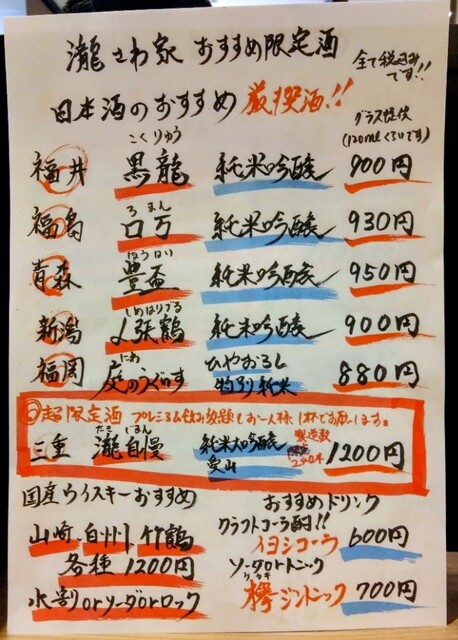 瀧さわ家 おすすめ限定酒
全て税込みです!!
日本酒のおすすめ 厳撰酒!!
グラス提供
(120mlくらいです)
こくりゅう
福井 黒龍 純米吟醸 900円
ろまん
福島 ロ万 純米吟醸 930円
ほうはい
青森 豊盃 純米吟醸 950円
しめはりづる
新潟 〆張鶴 純米吟醸 900円
にわ
福岡 庭のうぐいす ひやおろし 特別純米 880円
超限定酒 プレミアム飲み放題もお一人様1杯でお願いします。
たき じまん
三重 瀧自慢 純米大吟醸 愛山 製造数 限定 1200円
国産ウイスキーおすすめ
山崎、白州、竹鶴
各種 1200円
水割orソーダorロック
おすすめドリンク
クラフトコーラ酎!!
イヨシコーラ 600円
ソーダorトニック
ケヤキ
欅ジントニック 700円